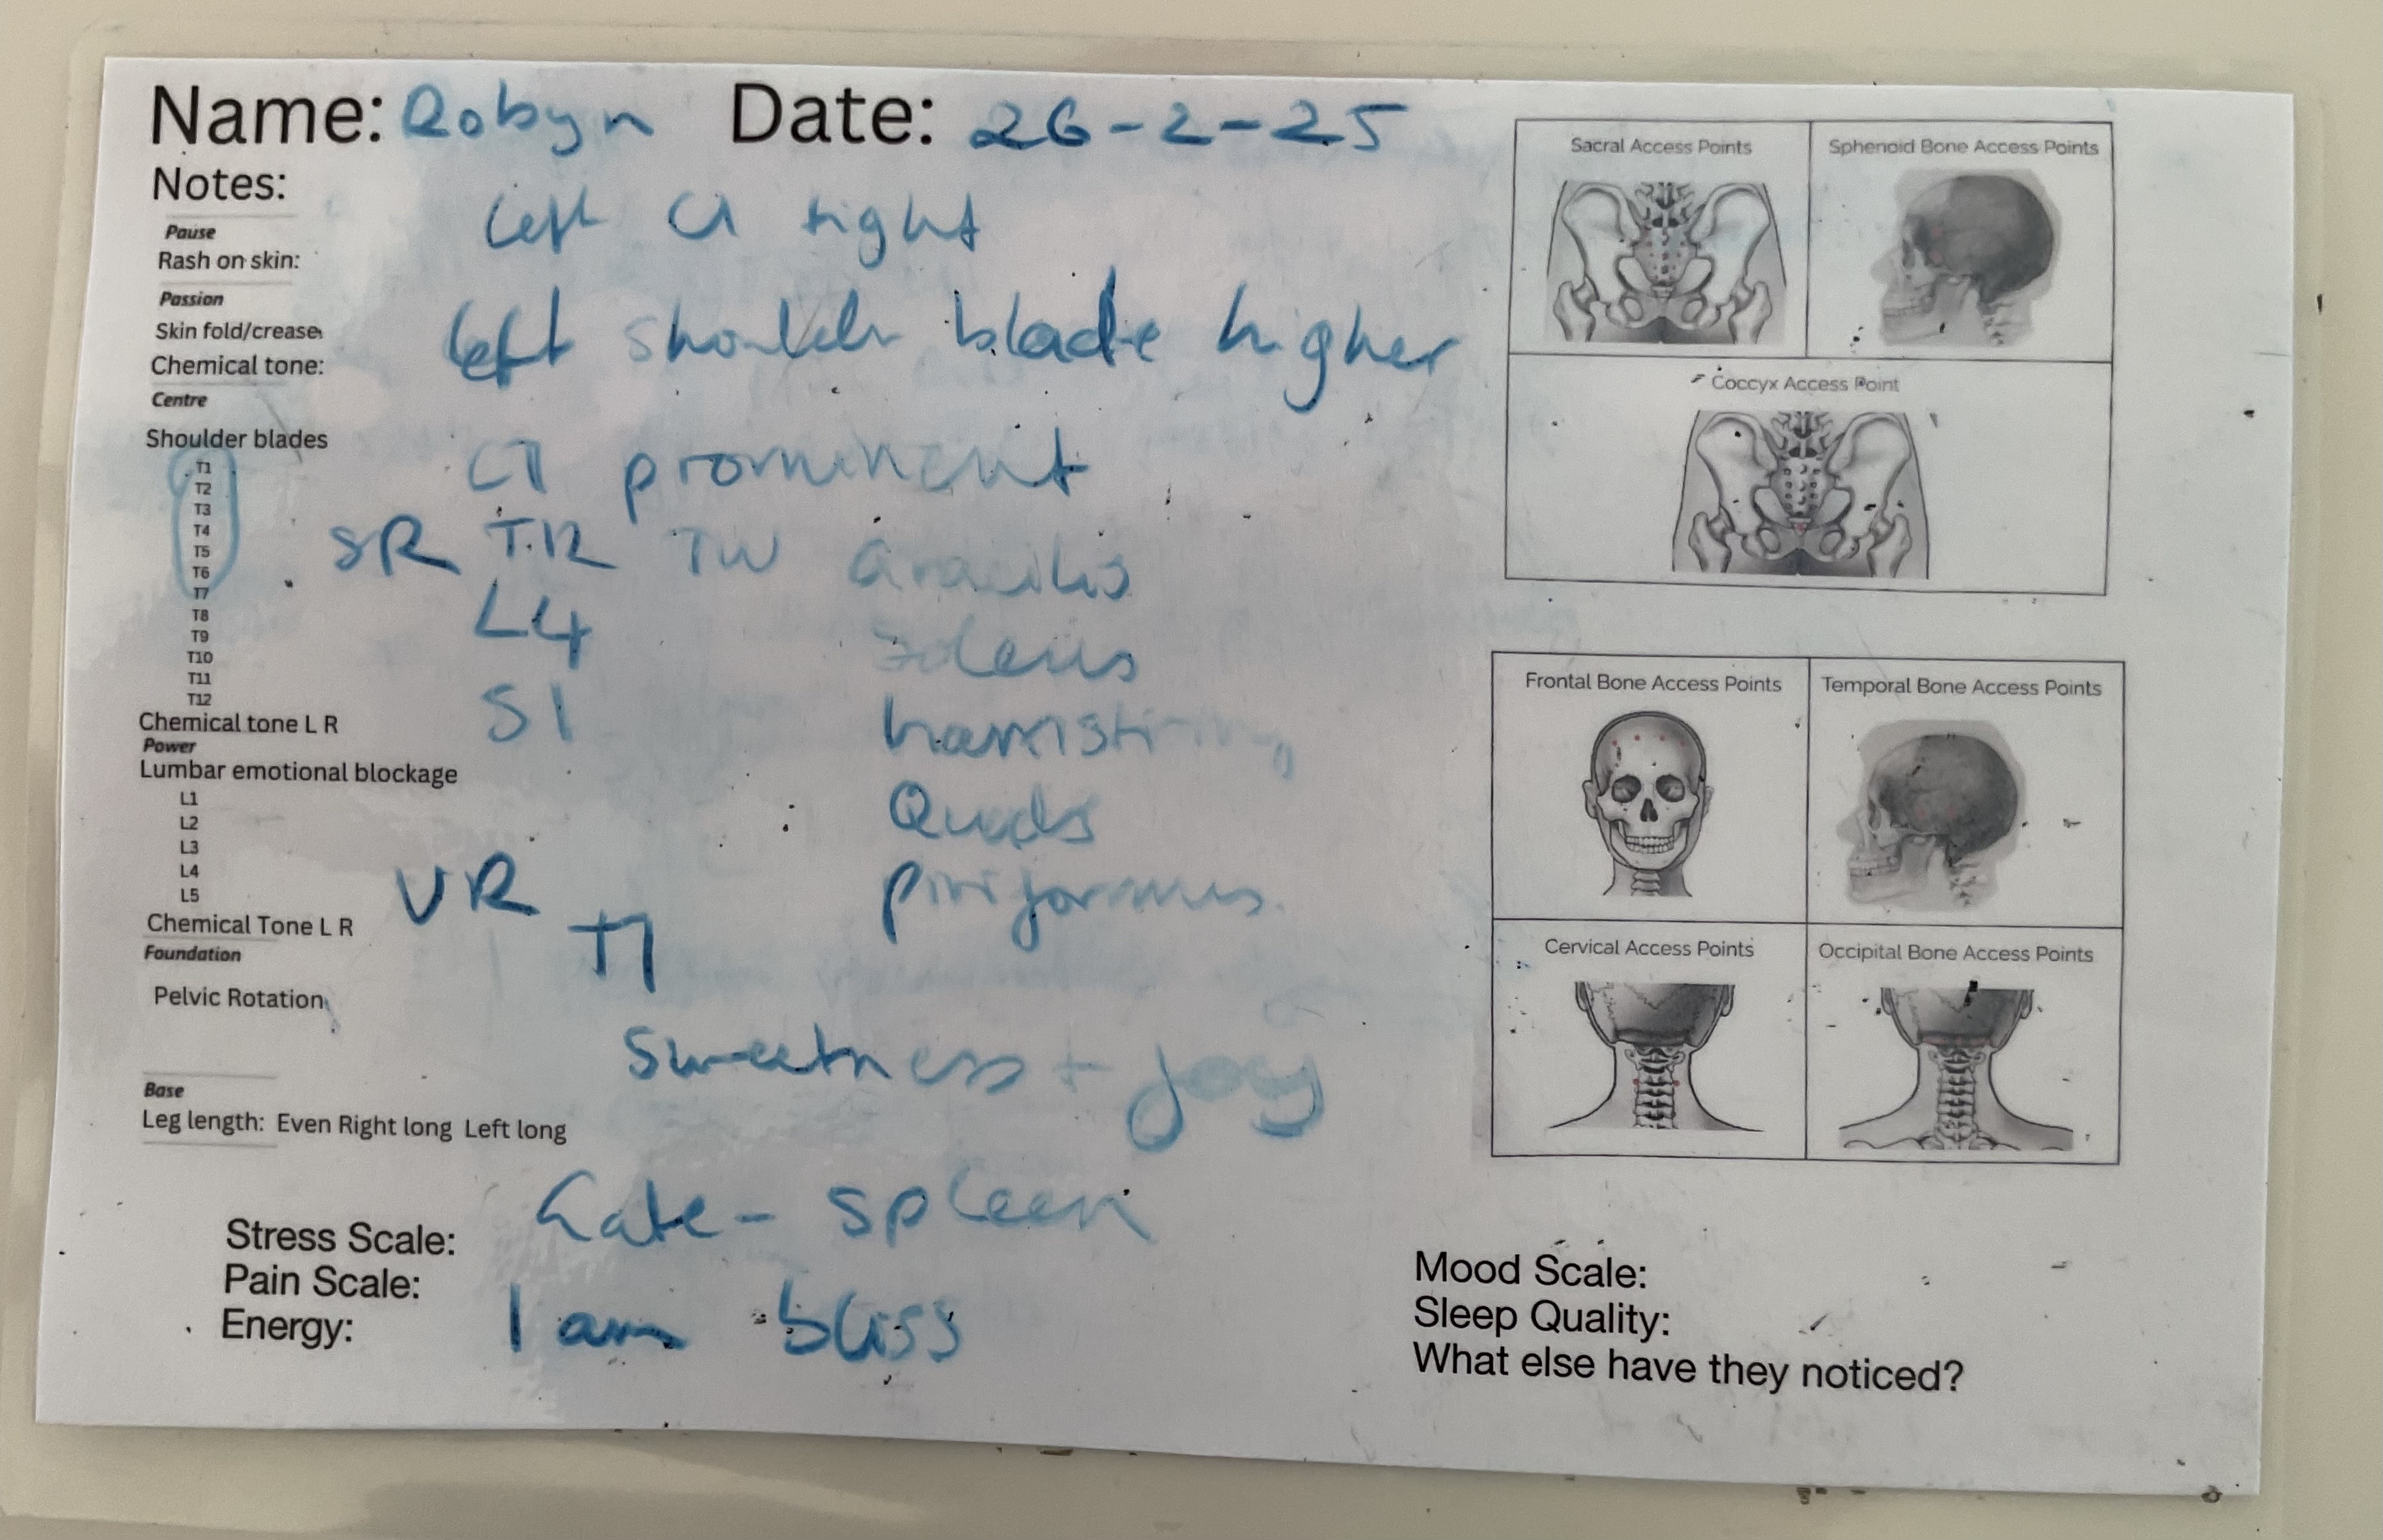 Name: Robyn Date: 26-2-25
Notes:
left C1 tight
Pause
Rash on skin:
Passion
Skin fold/crease
left shoulder blade higher
Chemical tone:
Centre
Shoulder blades
C7 prominent
T1
T2
T3
T4
T5
T6
T7
T8
T9
T10
T11
T12
SR T12 TW Gracilis
L4 Soleus
S1 hamstring
Quads
piriformus
Chemical tone L R
Power
Lumbar emotional blockage
L1
L2
L3
L4
L5
VR
T7
Chemical Tone L R
Foundation
Pelvic Rotation
Sweetness + Joy
Base
Leg length: Even Right long Left long
Gate - spleen
Stress Scale:
Pain Scale:
Energy:
I am bliss
Sacral Access Points
Sphenoid Bone Access Points
Coccyx Access Point
Frontal Bone Access Points
Temporal Bone Access Points
Cervical Access Points
Occipital Bone Access Points
Mood Scale:
Sleep Quality:
What else have they noticed?